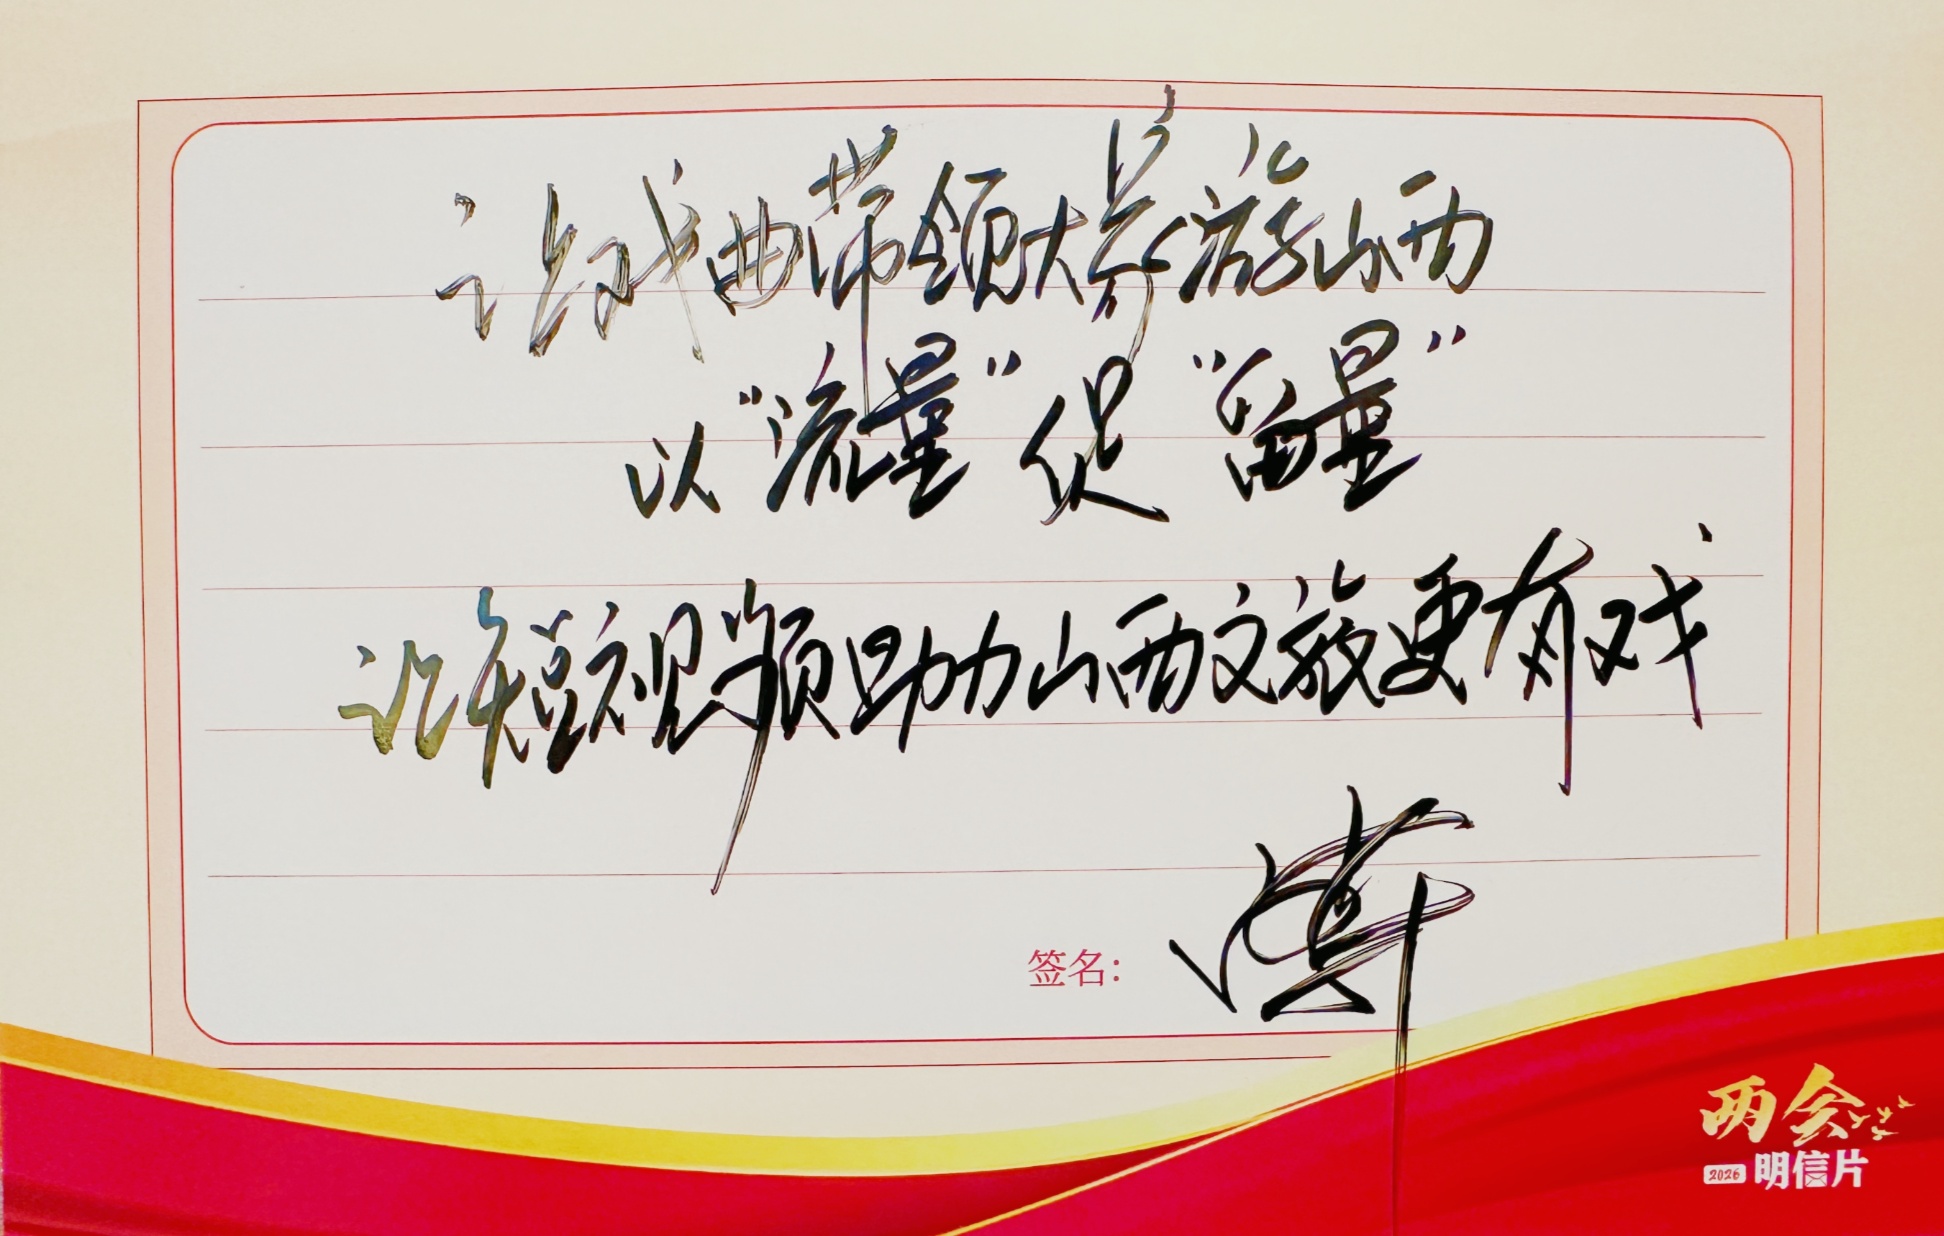 让戏曲带领大家游山西
以“流量”促“留量”
让短视频助力山西文旅更有戏
签名：
两会
2026 明信片